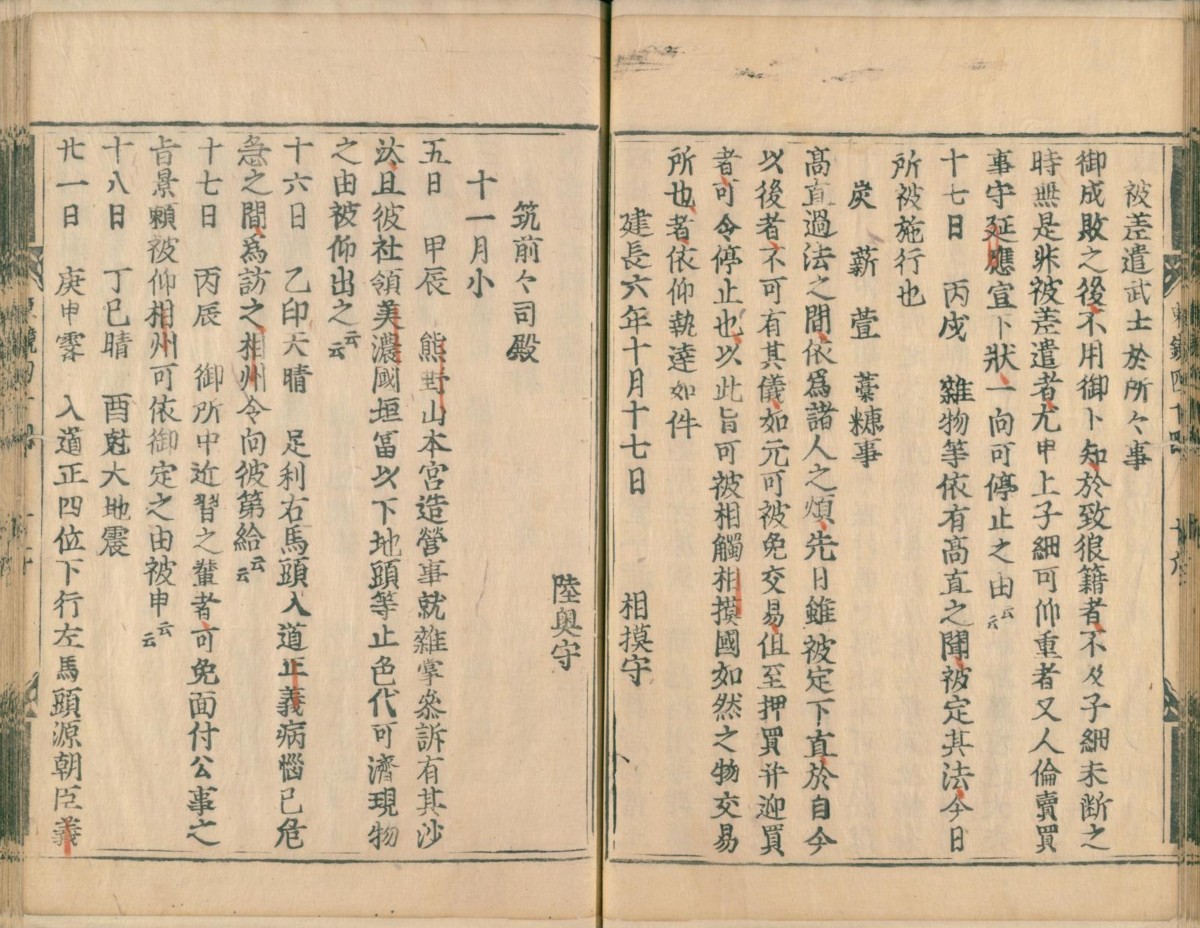 被差遣武士於所々事
御成敗之後不用御下知於致狼籍者不及子細未断之
時無是非被差遣者尤申上子細可仰重者又人倫賣買
事守延應宣下狀一向可停止之由云云
十七日　丙戌　雜物等依有高直之聞被定其法今日
所被施行也
炭　薪　萱　藁　糠事
高直過法之間依爲諸人之煩先日雖被定下直於自今
以後者不可有其儀如元可被免交易但至押買并迎買
者可令停止也以此旨可被相觸相摸國如然之物交易
所也者依仰執達如件
建長六年十月十七日　相摸守
陸奥守
筑前々司殿
十一月小
五日　甲辰　熊野山本宮造營事就雜掌叅訴有其沙
汰且彼社領美濃國垣冨以下地頭等止色代可濟現物
之由被仰出之云云
十六日　乙卯天晴　足利右馬頭入道正義病惱已危
急之間爲訪之相州令向彼第給云云
十七日　丙辰　御所中近習之輩者可免面付公事之
旨景頼被仰相州可依御定之由被申云云
十八日　丁巳晴　酉尅大地震
廿一日　庚申霽　入道正四位下行左馬頭源朝臣義